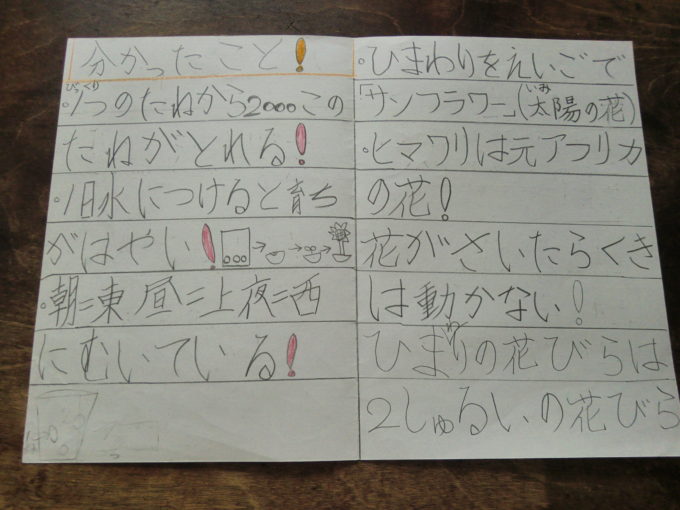 分かったこと!
びっくり
・1つのたねから2000この
たねがとれる!
・1日水につけると育ち
がはやい!
・朝=東 昼=上 夜=西
にむいている!
・ひまわりをえいごで
「サンフラワー」(太陽の花)
いみ
・ヒマワリは元アフリカ
の花!
花がさいたらくき
は動かない!
ひまわりの花びらは
2しゅるいの花びら